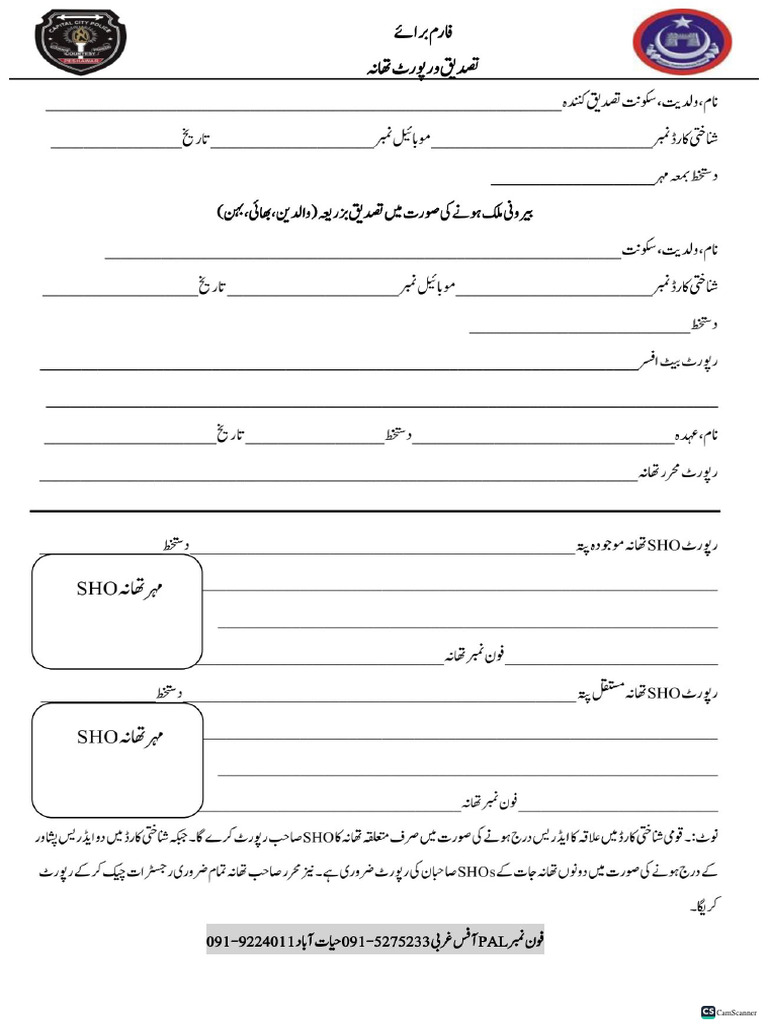 CAPITAL CITY POLICE
COURTESY
PESHAWAR
فارم برائے
تصدیق و رپورٹ تھانہ
نام، ولدیت، سکونت تصدیق کنندہ ____________________
شناختی کارڈ نمبر ____________________ موبائیل نمبر ____________________ تاریخ ____________________
دستخط بمعہ مہر ____________________
بیرونی ملک ہونے کی صورت میں تصدیق بزریعہ (والدین، بھائی، بہن)
نام، ولدیت، سکونت ____________________
شناختی کارڈ نمبر ____________________ موبائیل نمبر ____________________ تاریخ ____________________
دستخط ____________________
رپورٹ بیٹ افسر ____________________
نام، عہدہ ____________________ دستخط ____________________ تاریخ ____________________
رپورٹ محرر تھانہ ____________________
رپورٹ SHO تھانہ موجودہ پتہ ____________________ دستخط ____________________
مہر تھانہ SHO
فون نمبر تھانہ ____________________
رپورٹ SHO تھانہ مستقل پتہ ____________________ دستخط ____________________
مہر تھانہ SHO
فون نمبر تھانہ ____________________
نوٹ:۔ قومی شناختی کارڈ میں علاقہ کا ایڈریس درج ہونے کی صورت میں صرف متعلقہ تھانہ کا SHO صاحب رپورٹ کرے گا۔ جبکہ شناختی کارڈ میں دو ایڈریس پشاور
کے درج ہونے کی صورت میں دونوں تھانہ جات کے SHOs صاحبان کی رپورٹ ضروری ہے۔ نیز محرر صاحب تھانہ تمام ضروری رجسٹرات چیک کر کے رپورٹ
کریگا۔
فون نمبر PAL آفس غربی 091-5275233 حیات آباد 091-9224011
CS CamScanner